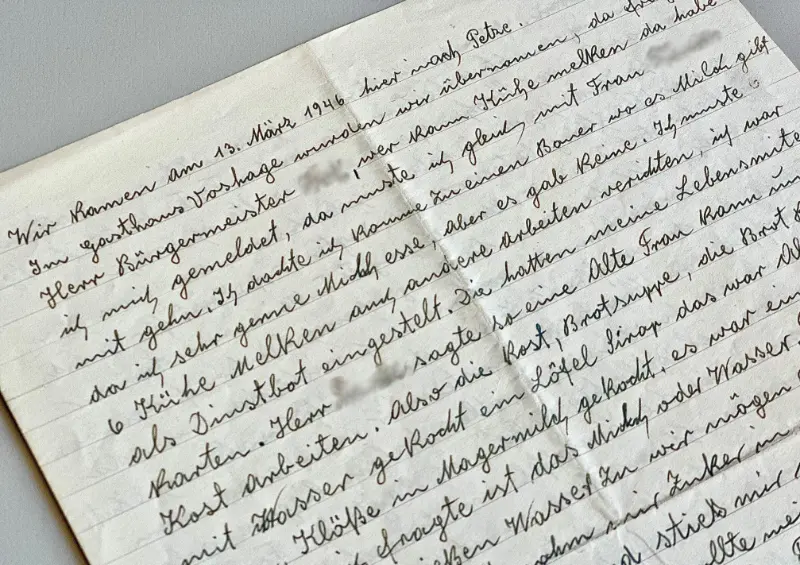 Wir kamen am 13. März 1946 hier nach Petze.
Im Gasthaus Voshage wurden wir übernomen, da
Herr Bürgermeister , wer kann Kühe melken da habe
ich mich gemeldet, da muste ich gleich mit Frau
mit gehn. Ich dachte ich komme zu einen Bauer wo es Milch gibt
da ich sehr genne Milch esse, aber es gab keine. Ich muste
6 Kühe Melken auch andere arbeiten verichten, ich war
als Dinstbot eingestelt. Die hatten meine
Karten. Herr sagte so eine Alte Frau kann
Kost arbeiten. Also die Kost, Brotsuppe, die Brot
mit Wasser gekocht ein Löfel Sirap das war
Klöße in Magermilch gekocht, es war
fragte ist das Milch oder Wasser.
Wasser zu wir mögen
mir Zuker in
sties mir